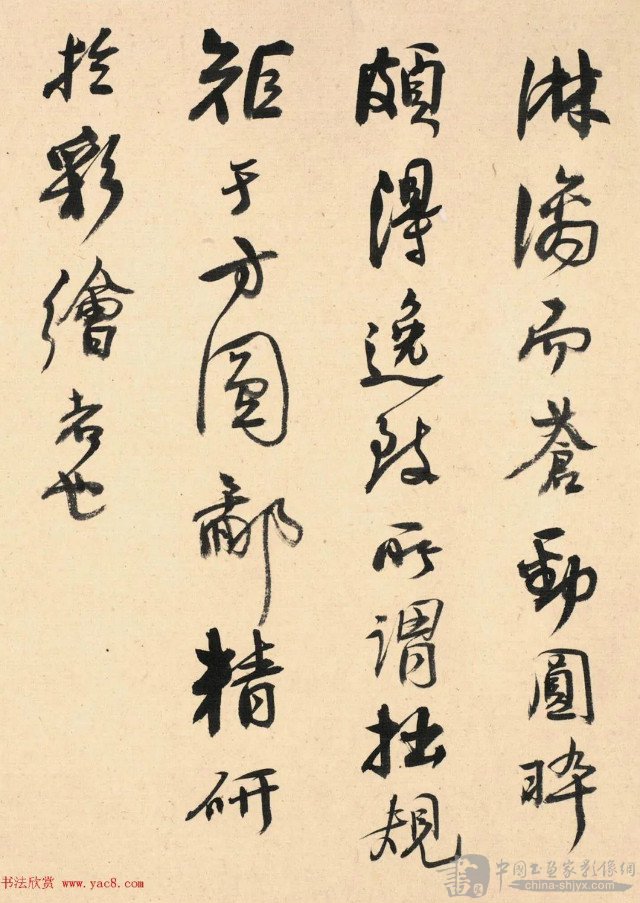 淋漓而蒼勁圓晬
頗得逸致所謂拙規
矩于方圓鄙精研
於彩繪者也
书法欣赏 www.yac8.com
中国书画家影像網
china-shjyx.com